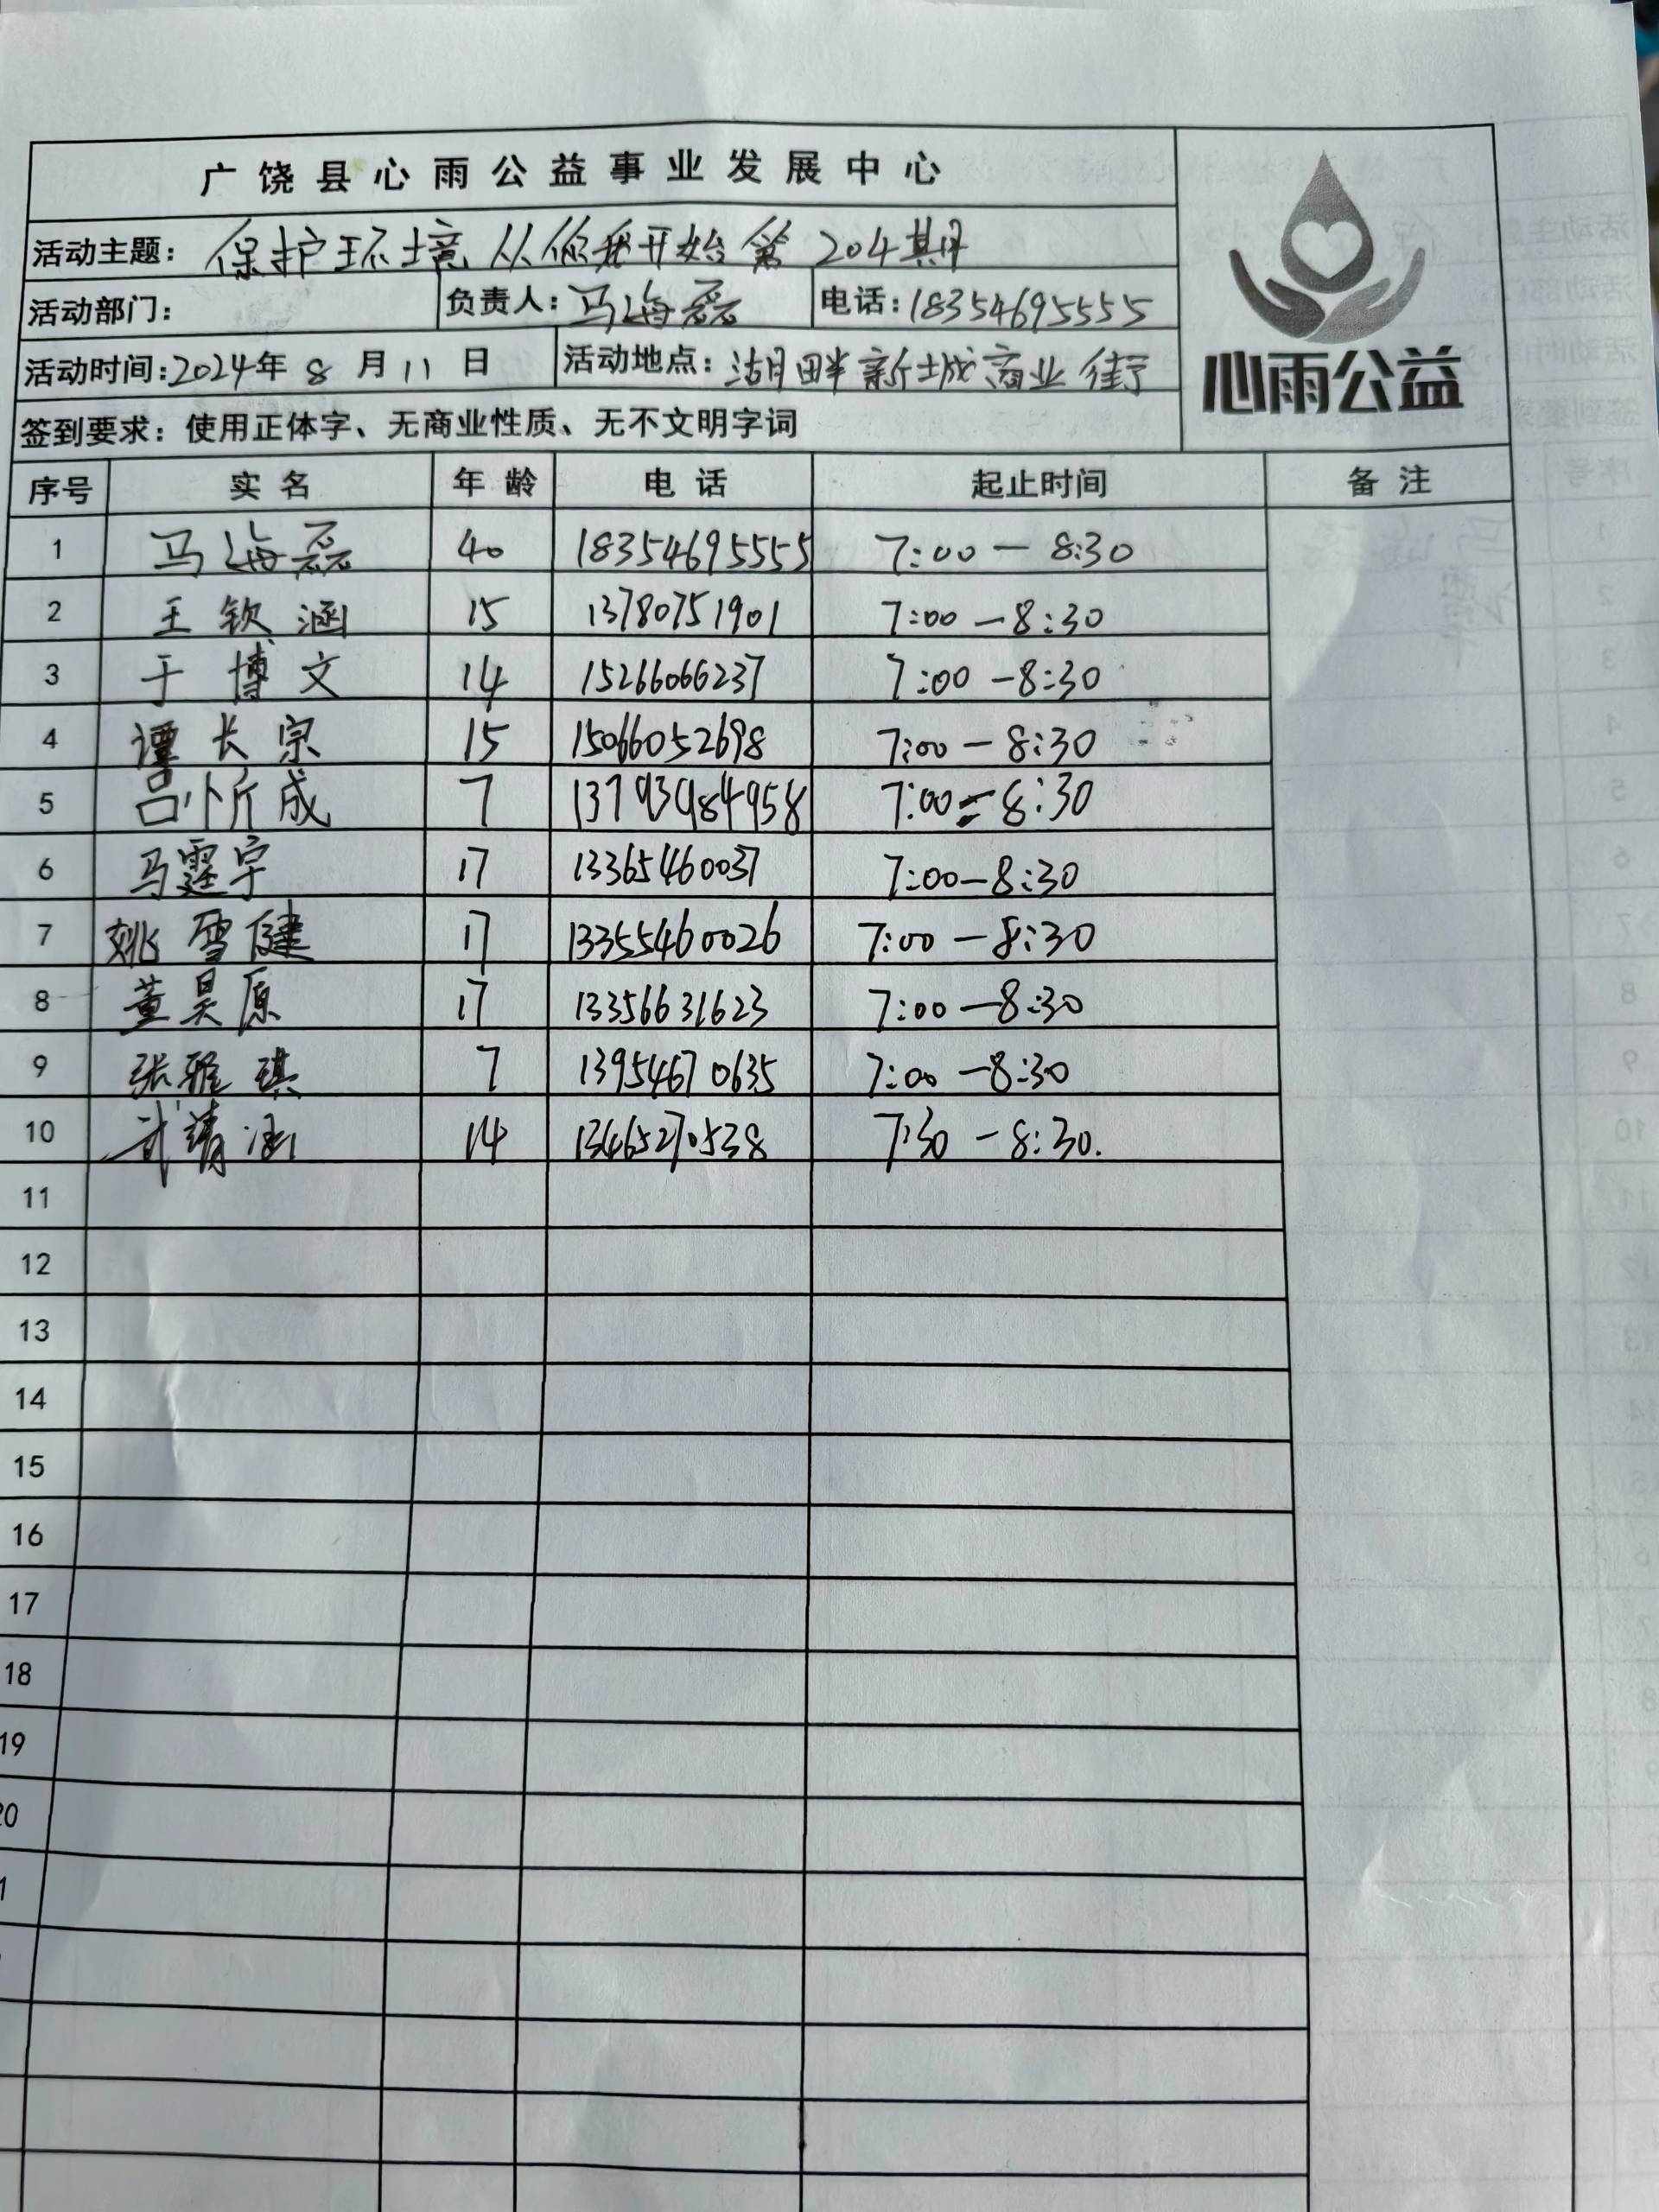 广饶县心雨公益事业发展中心
活动主题：保护环境 从你我开始 第204期
活动部门： 负责人：马海磊 电话：18354695555
活动时间：2024年 8 月 11 日 活动地点：湖畔新城商业街
心雨公益
签到要求：使用正体字、无商业性质、无不文明字词
序号 实名 年龄 电话 起止时间 备注
1 马海磊 40 18354695555 7:00 — 8:30
2 王钦涵 15 13780751901 7:00 — 8:30
3 于博文 14 15266066237 7:00 — 8:30
4 谭长宗 15 15066052698 7:00 — 8:30
5 吕忻成 7 13793984958 7:00 — 8:30
6 马霆宇 17 13365460037 7:00 — 8:30
7 姚雪健 17 13355460026 7:00 — 8:30
8 董昊原 17 13356631623 7:00 — 8:30
9 张雅琪 7 13954670635 7:00 — 8:30
10 武靖涵 14 13465270538 7:30 — 8:30.
11
12
13
14
15
16
17
18
19
20